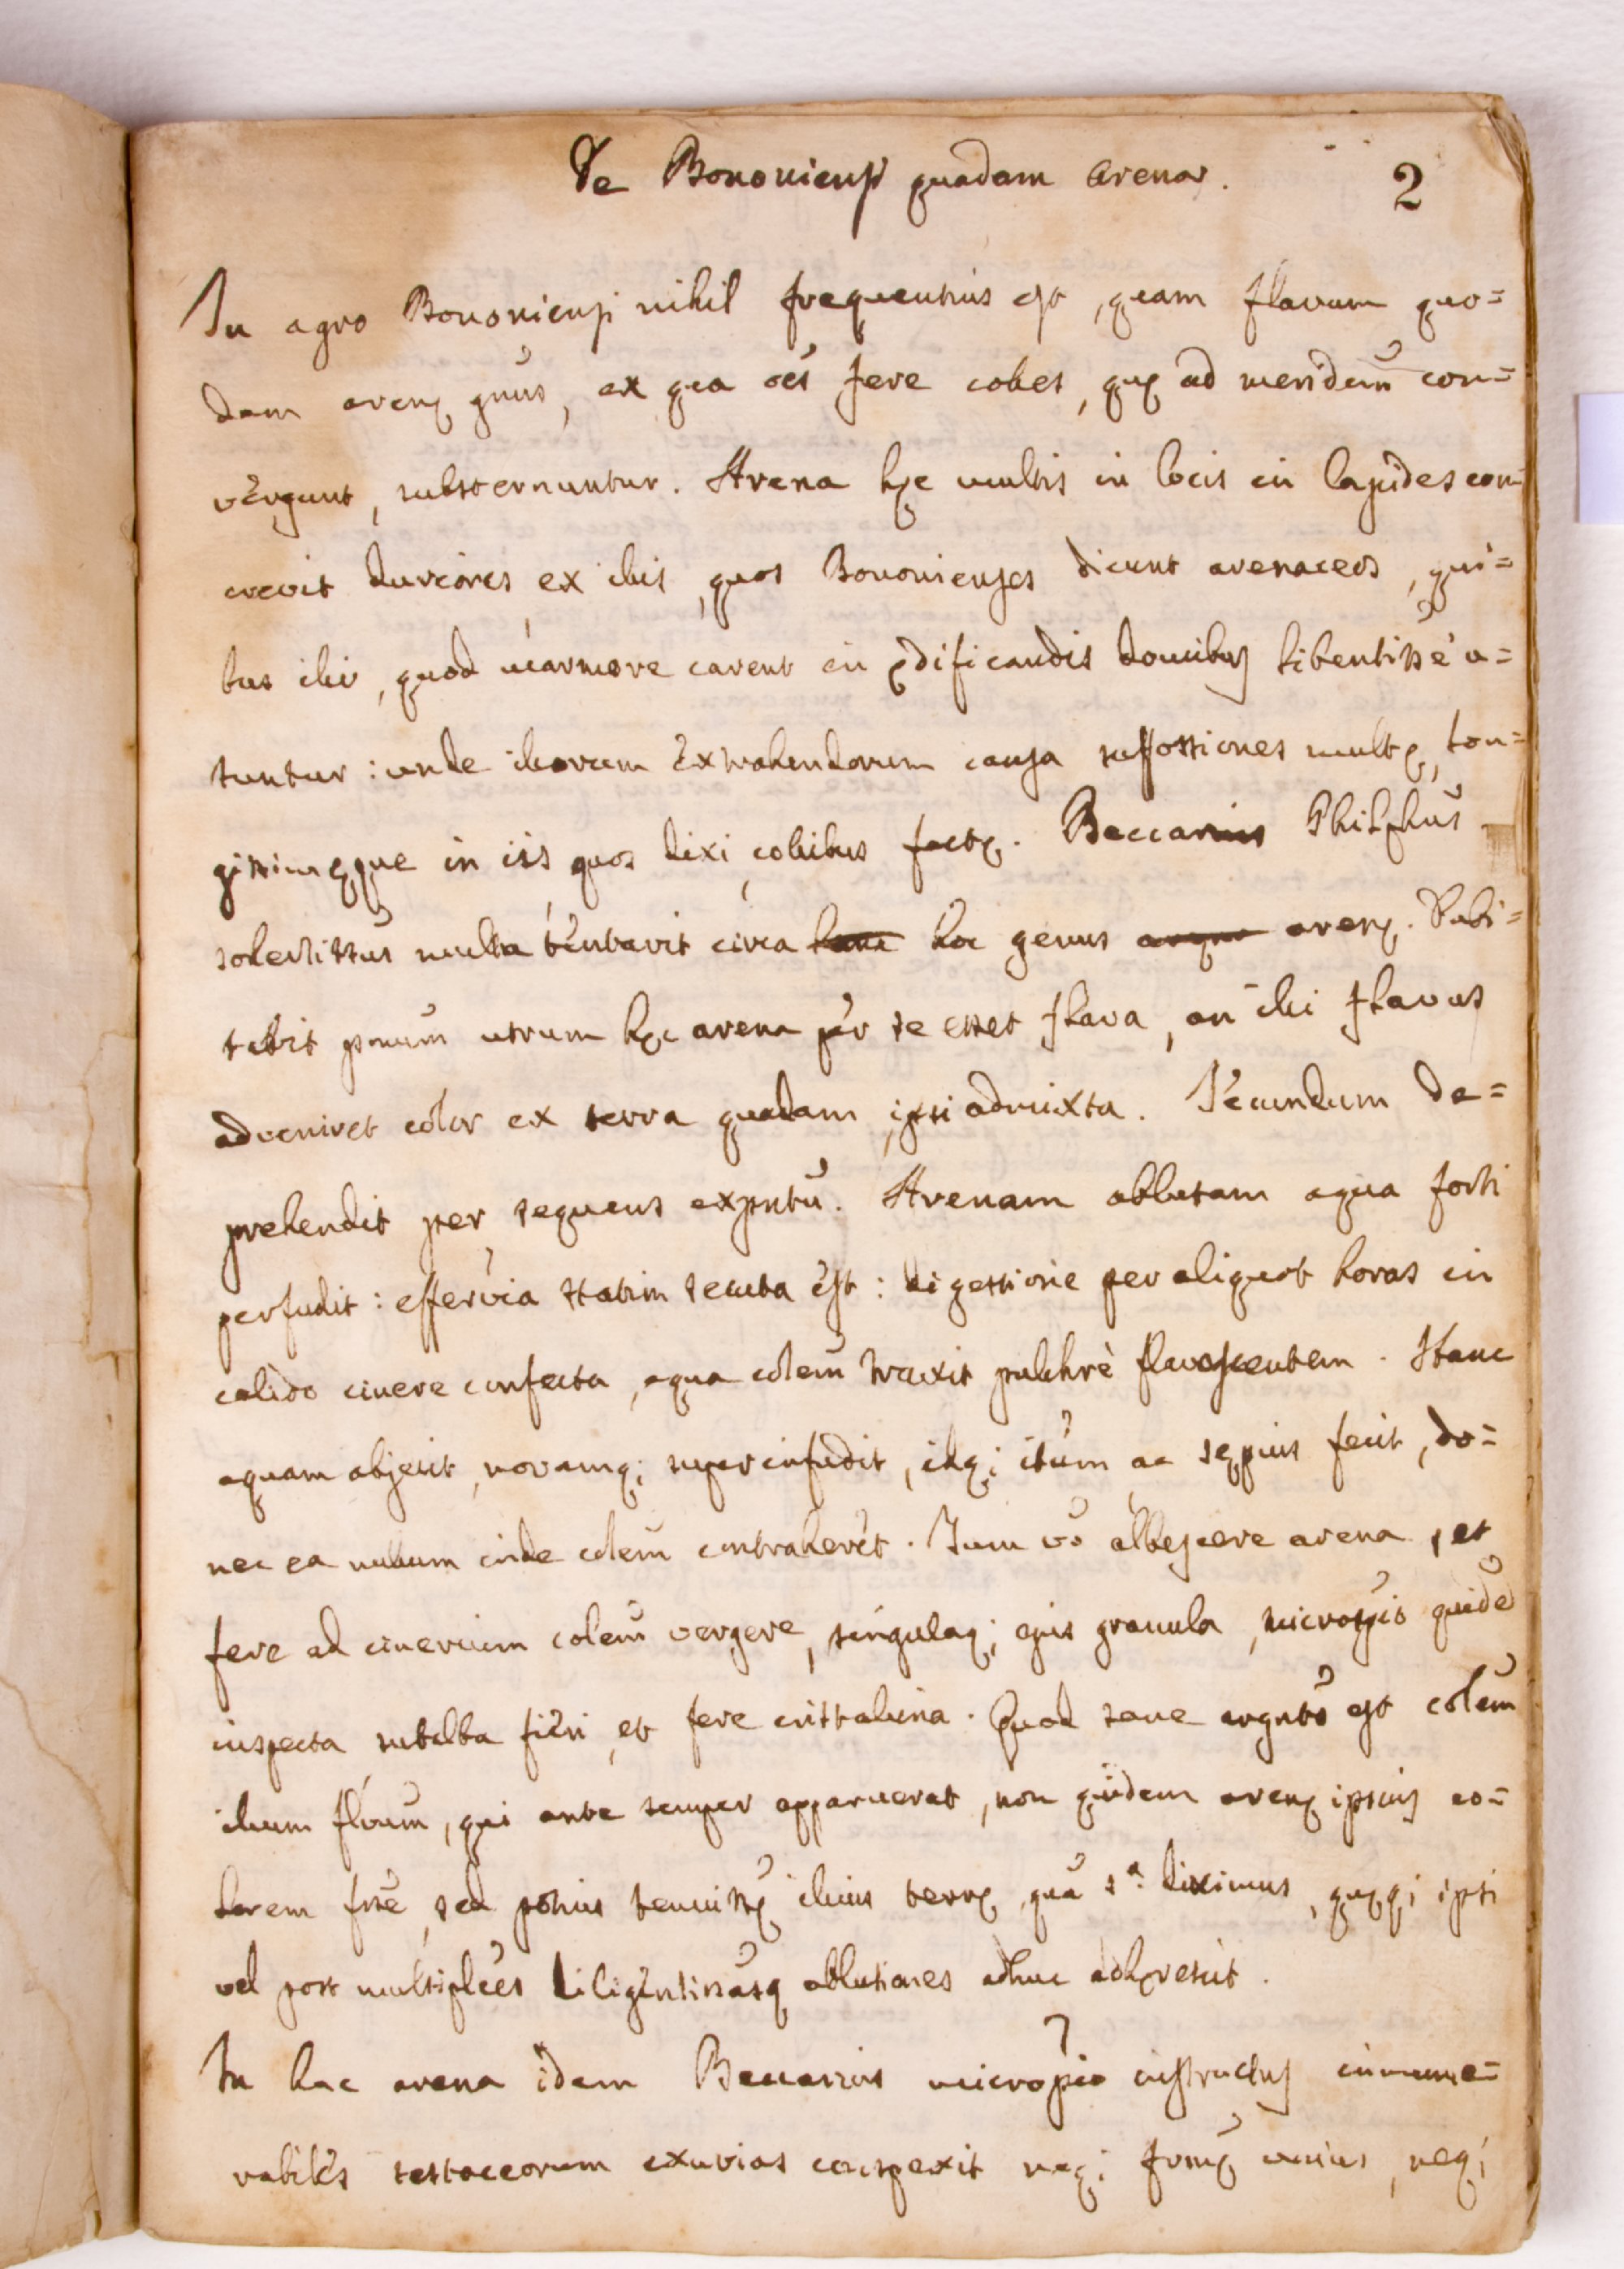 De Bononiensi quadam arena.
2
In agro Bononiensi nihil frequentius est, quam flavum quo=
dam arenę gnus, ex qua oēs fere colles, quę ad meridem con=
vergunt, substernuntur. Arena hęc multis in locis in lapides con
crevit duriores, ex illis, quos Bononienses dicunt arenaceos, qui=
bus illi, quod marmore carent in ędificandis domibus libentissē u=
tuntur: unde illorum extrahendorum causa suffossiones multę, lon=
gissimęque in iis, quos dixi, collibus factę. Beccarius Philphus
solertissus multa tentavit circa hanc hoc genus arenę. Dubi=
tabit pmum utrum hęc arena per se esset flava, an illi flavus
adveniret color ex terra quadam ipsi admixta. Secundum de=
prehendit per sequens expntū. Arenam ablutam aqua forti
perfudit: effervia statim secuta est: digestione per aliquot horas in
calido cinere confecta, aqua colem traxit pulchrè flavescentem. Hanc
aquam abjecit, novamq; superinfudit, idq; itum ac sępius fecit, do=
nec ea nullum inde colem contraheret. Tum vo albescere arena, et
fere ad cinereum colem vergere, singulaq; ejus granula, micropio quidē
inspecta subalba fieri, et fere cristallina. Quod sane argnto est colem
illum flvum, qui ante semper apparuerat, non quidem arenę ipsius co=
lorem fssē, sed potius tenuissę illius terrę, quā sª. diximus, quęq; ipsi
vel post multiplces diligentissasq ablutiones adhuc adhęrescit.
In hac arena idem Beccarius micropio instructus innume=
rabiles testaceorum exuvias conspexit neq; formę unius, neq;